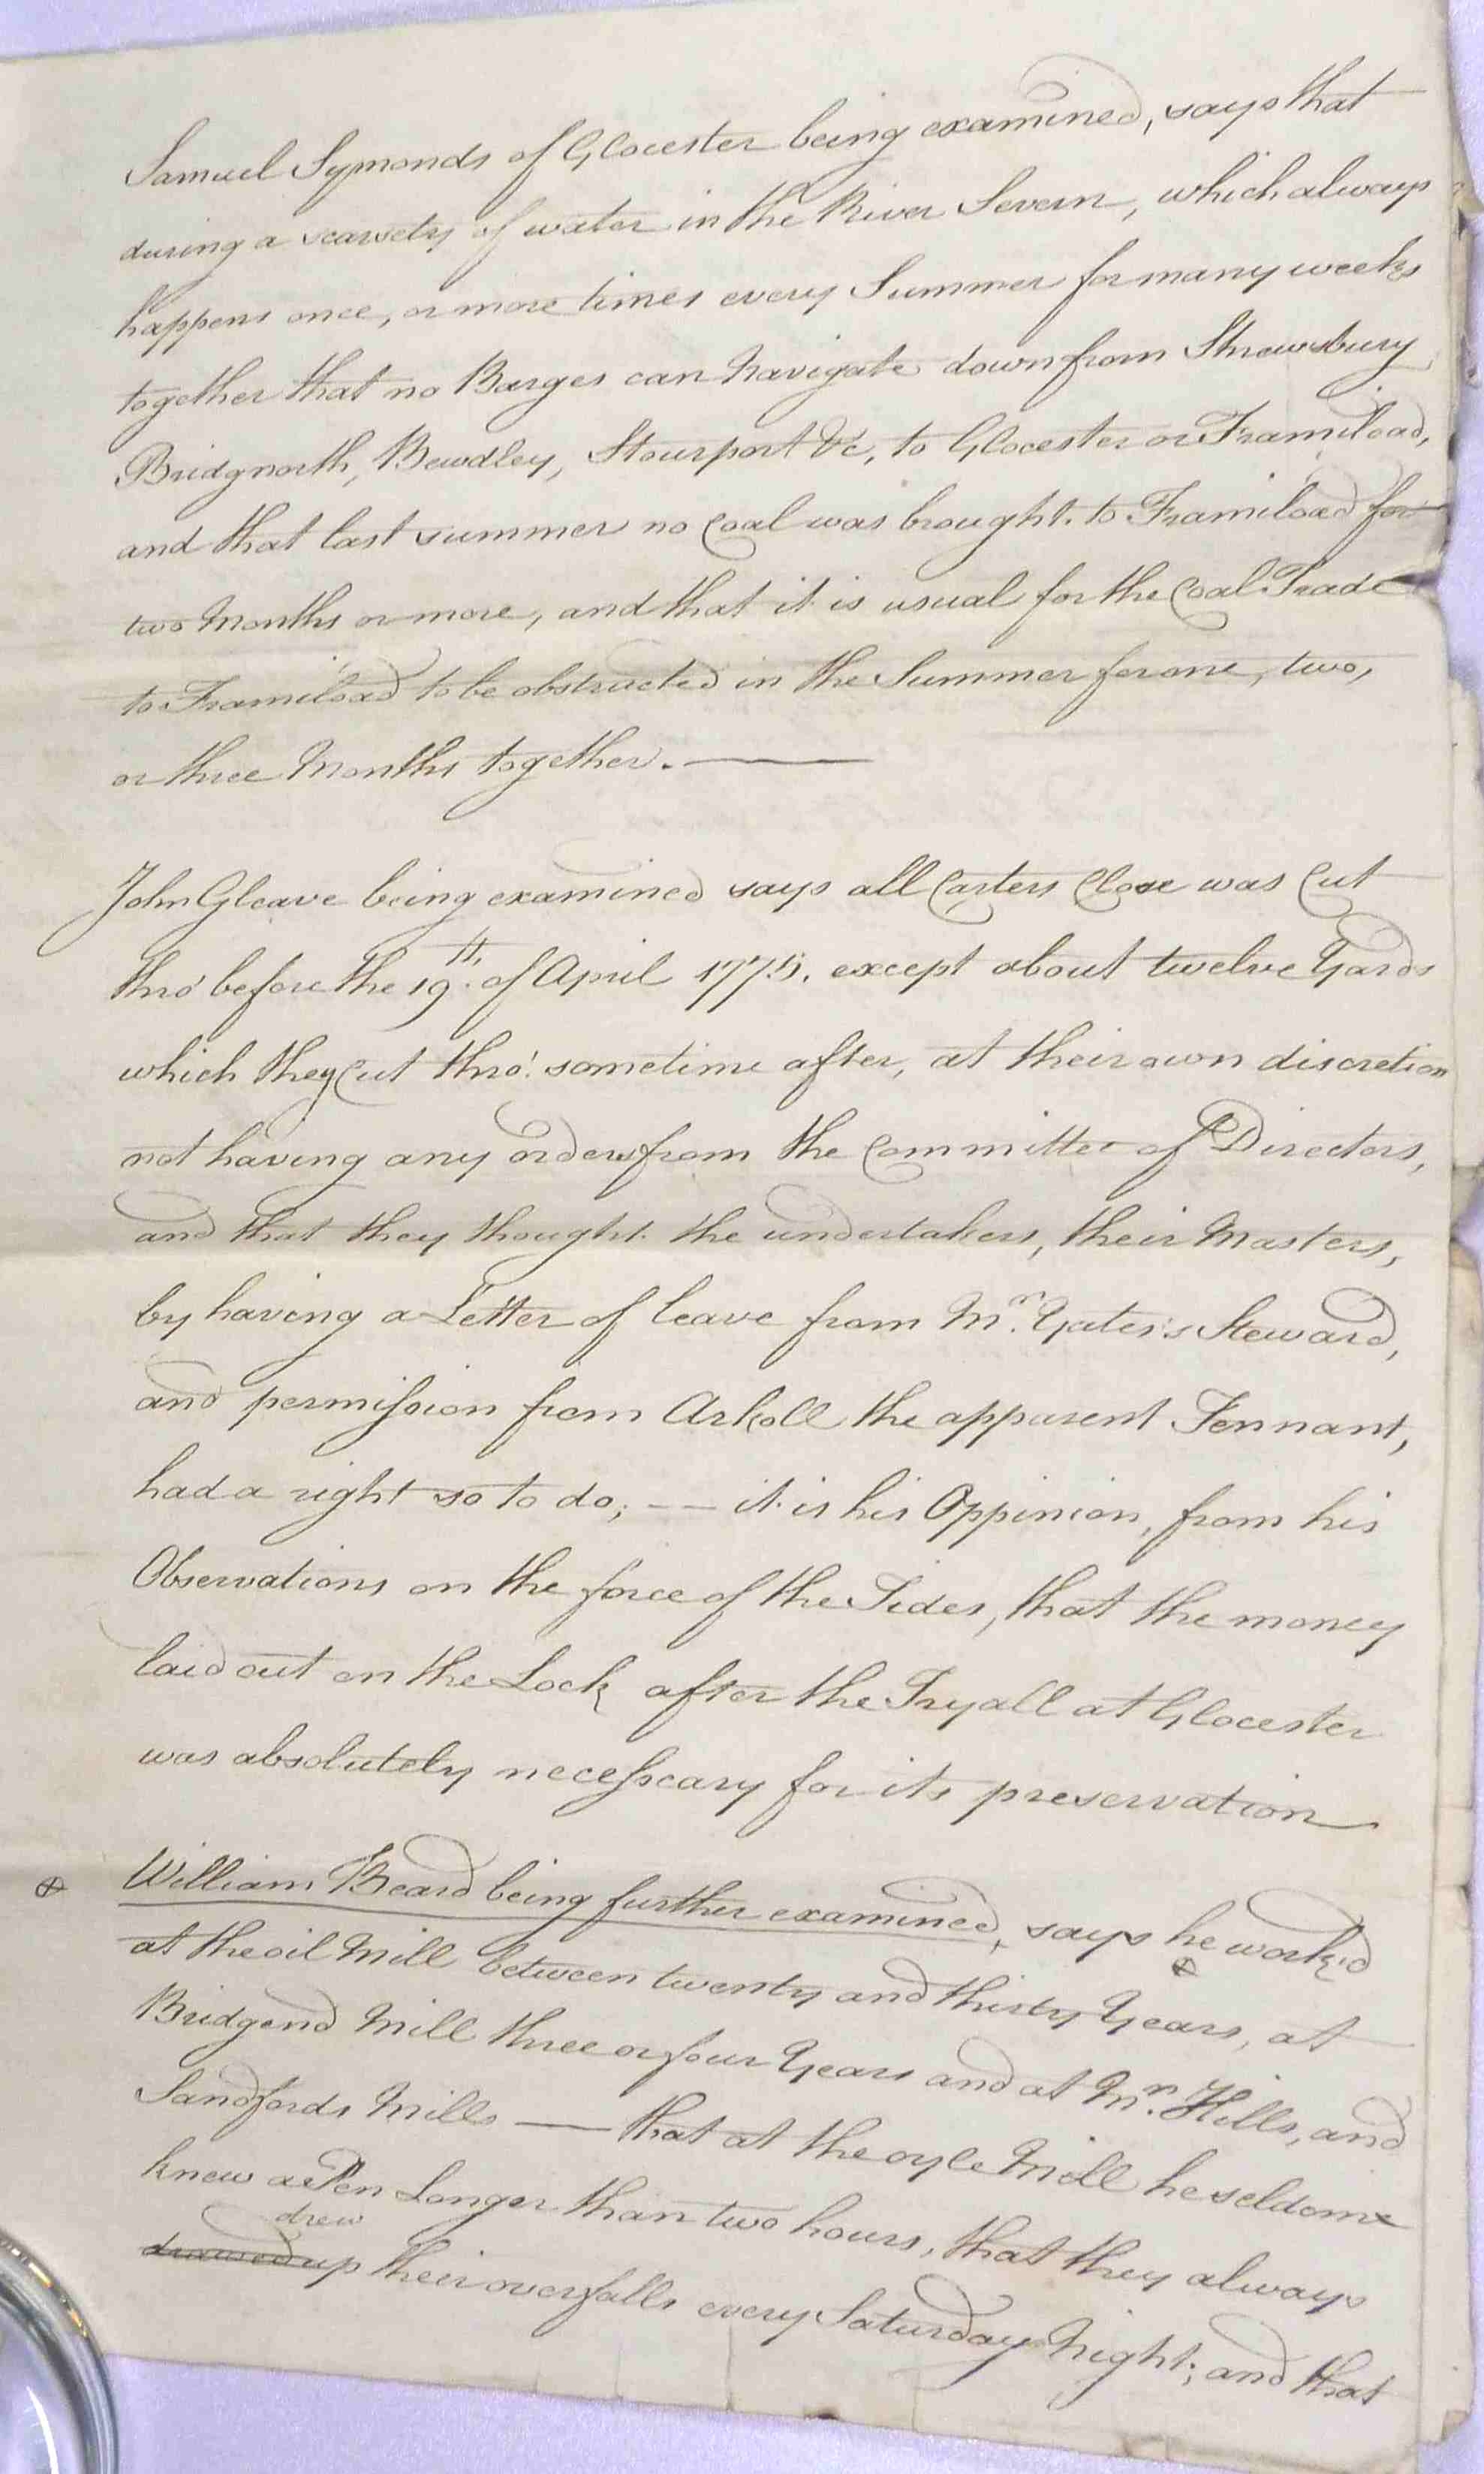 Samuel Symonds of Glocester being examined, says that
during a scarsety of water in the River Severn, which always
happens once, or more times every Summer for many weeks
together that no Barges can Navigate down from Shrewsbury
Bridgnorth, Bewdley, Stourport &c, to Glocester or Framiload,
and that last summer no Coal was brought to Framiload for
two Months or more, and that it is usual for the Coal Trade
to Framiload to be obstructed in the Summer for one, two,
or three Months together. —
John Gleave being examined says all Carters Close was Cut
thro' before the 19th. of April 1775. except about twelve Yards
which they Cut thro'. sometime after, at their own discretion
not having any orders from the Committee of Directors,
and that they thought the undertakers, their Masters,
by having a Letter of leave from Mr. Yates's Steward,
and permission from Arkoll the apparent Tennant,
had a right so to do; — it is his Oppinion, from his
Observations on the force of the Tides, that the money
laid out on the Lock after the Tryall at Glocester
was absolutely necesscary for its preservation
⊕ William Beard being further examined, says he work'd
⊕
at the oil Mill between twenty and thirty Years, at
Bridgend Mill three or four Years and at Mr. Hills, and
Sandfords Mills — that at the oyle Mill he seldome
knew a Pen Longer than two hours, that they always
drew
drawed up their overfalls every Saturday Night; and that